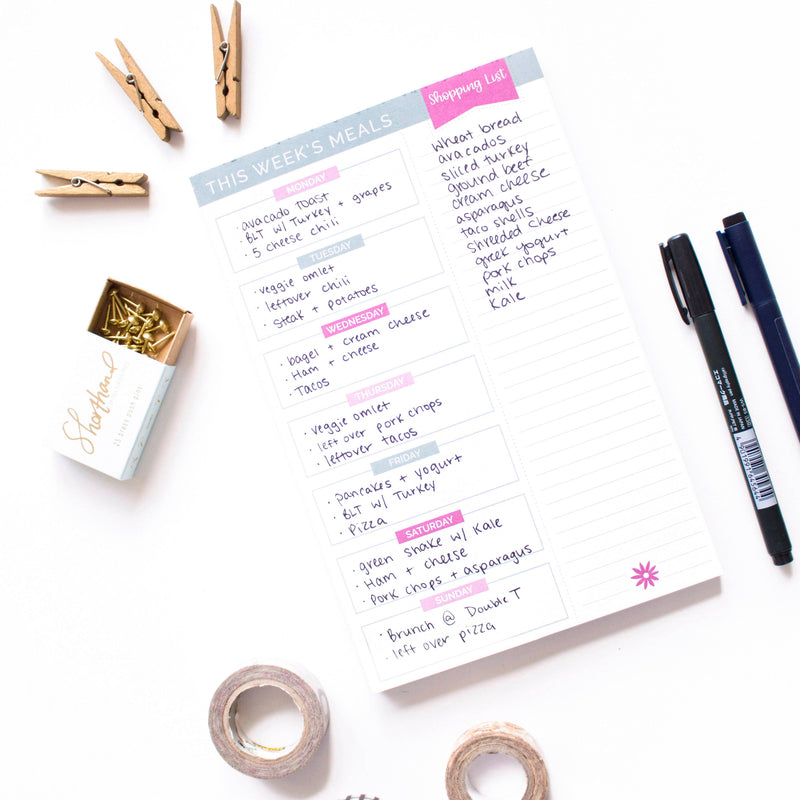 THIS WEEK'S MEALS
MONDAY
· avocado toast
· BLT w/ Turkey + grapes
· 5 cheese chili
TUESDAY
· veggie omlet
· leftover chili
· steak + potatoes
WEDNESDAY
· bagel + cream cheese
· Ham + cheese
· Tacos
THURSDAY
· veggie omlet
· left over pork chops
· leftover tacos
FRIDAY
· pancakes + yogurt
· BLT w/ Turkey
· Pizza
SATURDAY
· green shake w/ Kale
· Ham + cheese
· Pork chops + asparagus
SUNDAY
· Brunch @ Double T
· left over pizza
Shopping List
wheat bread
avacados
sliced turkey
ground beef
cream cheese
asparagus
taco shells
shreeded cheese
greek yogurt
pork chops
milk
Kale
Shorthand